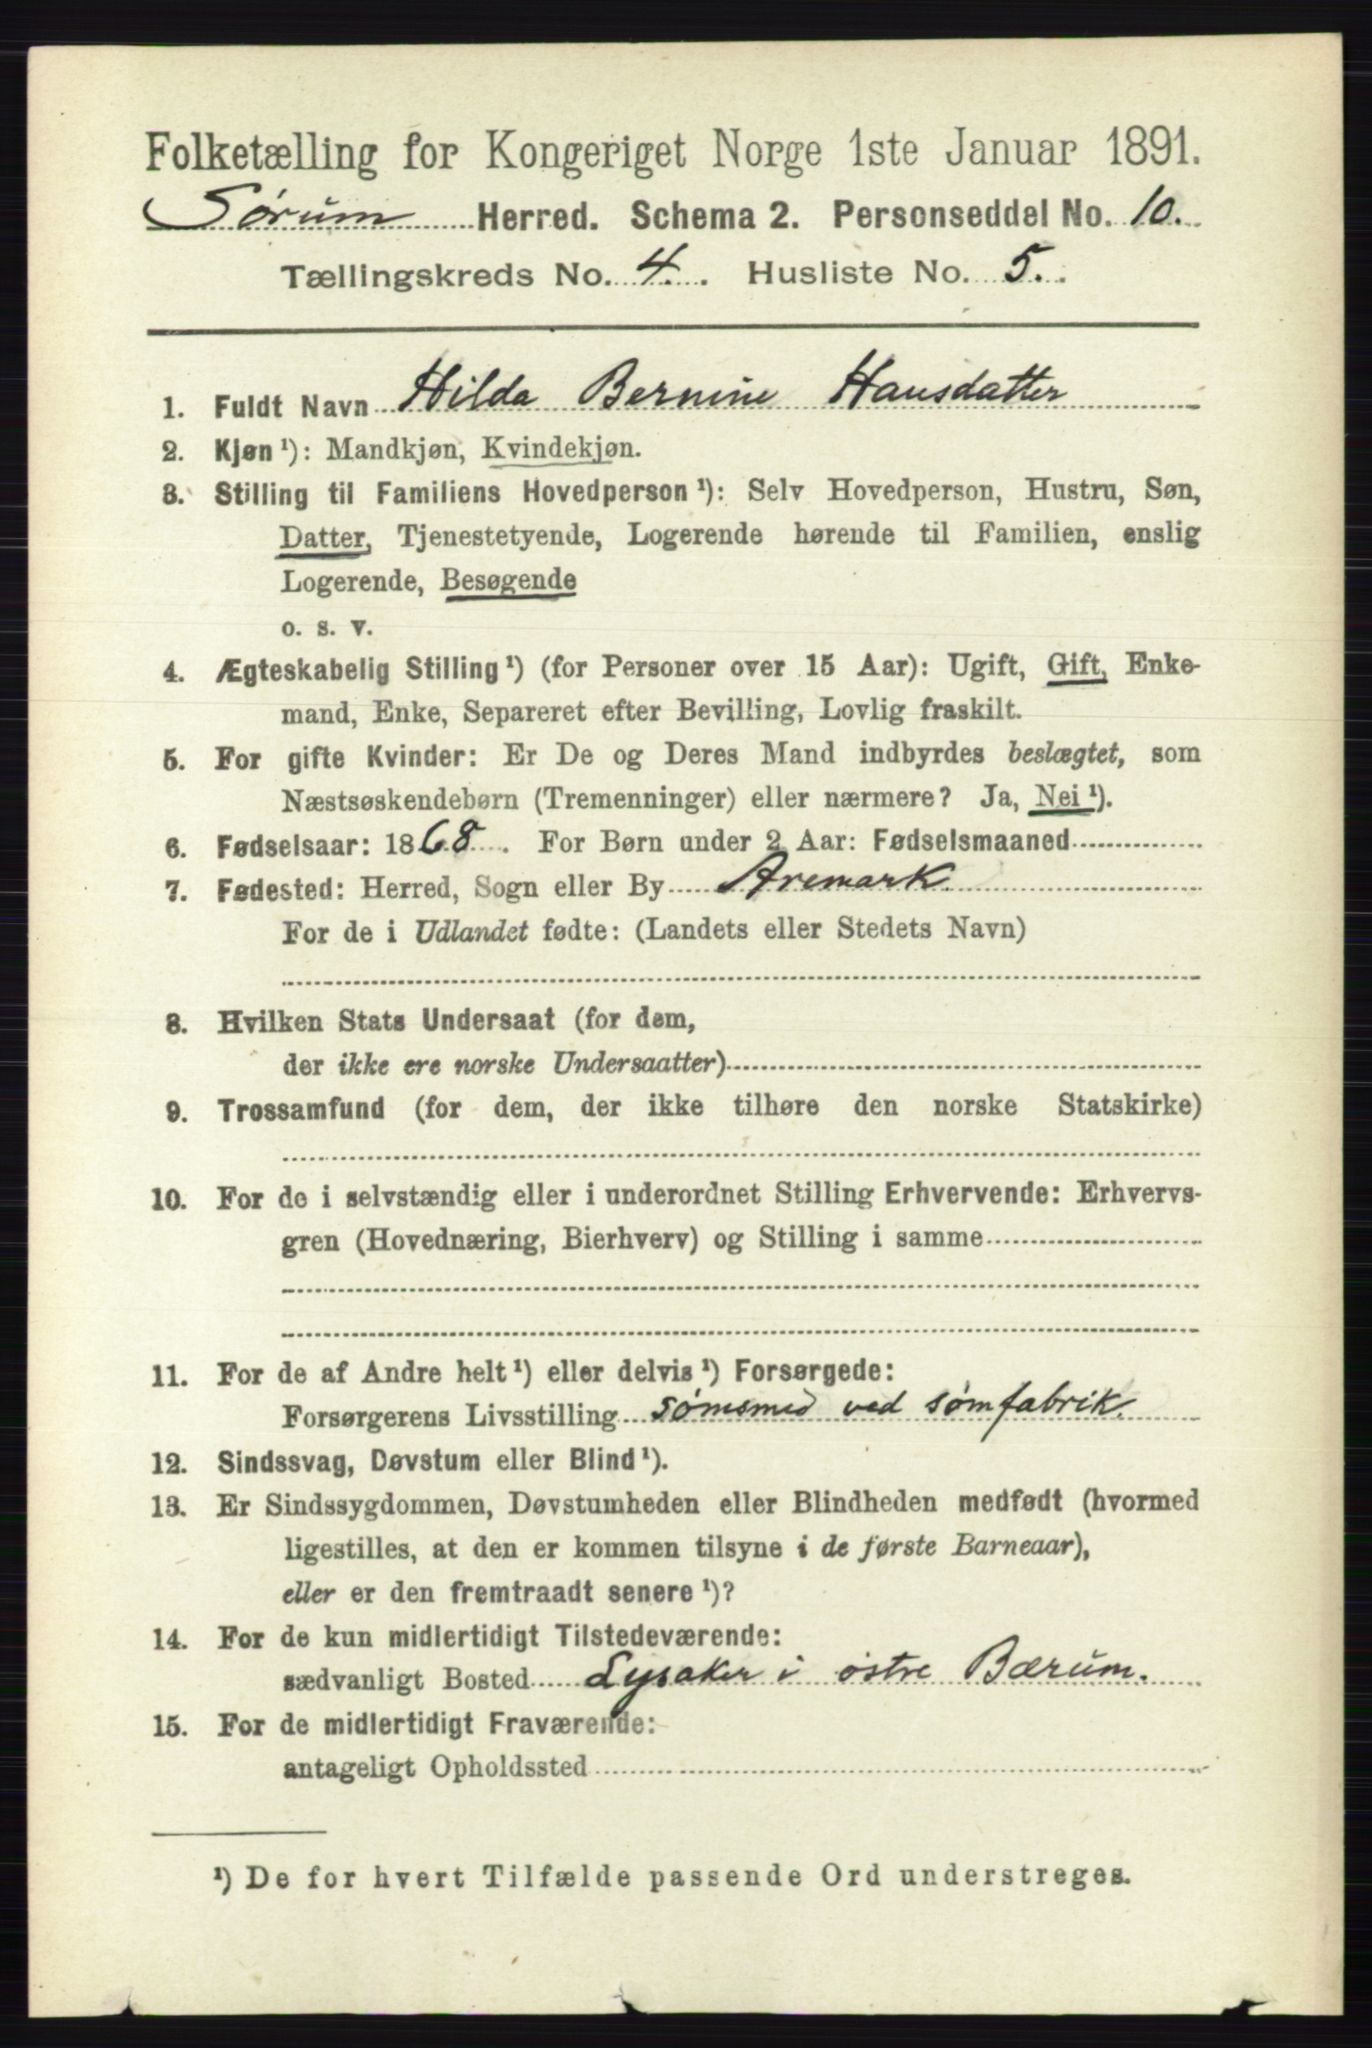 Folketælling for Kongeriget Norge 1ste Januar 1891.
Sørum Herred. Schema 2. Personseddel No. 10.
Tællingskreds No. 4. Husliste No. 5.
1. Fuldt Navn Hilda Bernine Hansdatter
2. Kjøn¹): Mandkjøn, Kvindekjøn.
3. Stilling til Familiens Hovedperson¹): Selv Hovedperson, Hustru, Søn,
Datter, Tjenestetyende, Logerende hørende til Familien, enslig
Logerende, Besøgende
o. s. v.
4. Ægteskabelig Stilling¹) (for Personer over 15 Aar): Ugift, Gift, Enke-
mand, Enke, Separeret efter Bevilling, Lovlig fraskilt.
5. For gifte Kvinder: Er De og Deres Mand indbyrdes beslægtet, som
Næstsøskendebørn (Tremenninger) eller nærmere? Ja, Nei¹).
6. Fødselsaar: 1868. For Børn under 2 Aar: Fødselsmaaned
7. Fødested: Herred, Sogn eller By Aremark.
For de i Udlandet fødte: (Landets eller Stedets Navn)
8. Hvilken Stats Undersaat (for dem,
der ikke ere norske Undersaatter)
9. Trossamfund (for dem, der ikke tilhøre den norske Statskirke)
10. For de i selvstændig eller i underordnet Stilling Erhvervende: Erhvervs-
gren (Hovednæring, Bierhverv) og Stilling i samme
11. For de af Andre helt¹) eller delvis¹) Forsørgede:
Forsørgerens Livsstilling sømsmed ved sømfabrik.
12. Sindssvag, Døvstum eller Blind¹).
13. Er Sindssygdommen, Døvstumheden eller Blindheden medfødt (hvormed
ligestilles, at den er kommen tilsyne i de første Barneaar),
eller er den fremtraadt senere¹)?
14. For de kun midlertidigt Tilstedeværende:
sædvanligt Bosted Lysaker i østre Bærum.
15. For de midlertidigt Fraværende:
antageligt Opholdssted
¹) De for hvert Tilfælde passende Ord understreges.